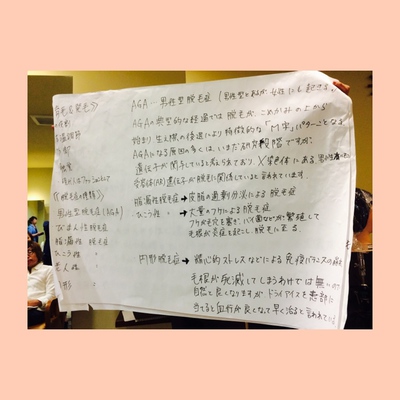 育毛&発毛》
AGA…男性型脱毛症（男性型とあるが女性にも起きます）
AGAの典型的な経過では脱毛が、こめかみの上から
始まり生え際の後退により特徴的な「M字」パターンとなる
AGAになる原因の多くは、いまだ研究段階ですが、
遺伝子が関与していると考えられており X染色体にある男性
容体(AR)遺伝子が脱毛に関係していると言われています。
《脱毛症の種類》
男性型脱毛症(AGA)
びまん性脱毛症
脂漏性 脱毛症
ひこう性 〃
円形 〃
脂漏性脱毛症 → 皮脂の過剰分泌による脱毛症
ひこう性 〃 → 大量のフケによる脱毛症
フケが毛穴を塞ぎ、バイ菌などが繁殖して
毛根が炎症を起こし、脱毛に至る
円形脱毛症 → 精神的ストレスなどによる免疫バランスの
毛根が死滅してしまうわけでは無いので
自然と良くなりますがドライアイスを患部に
当てると血行が良くなって早く治ると言われている